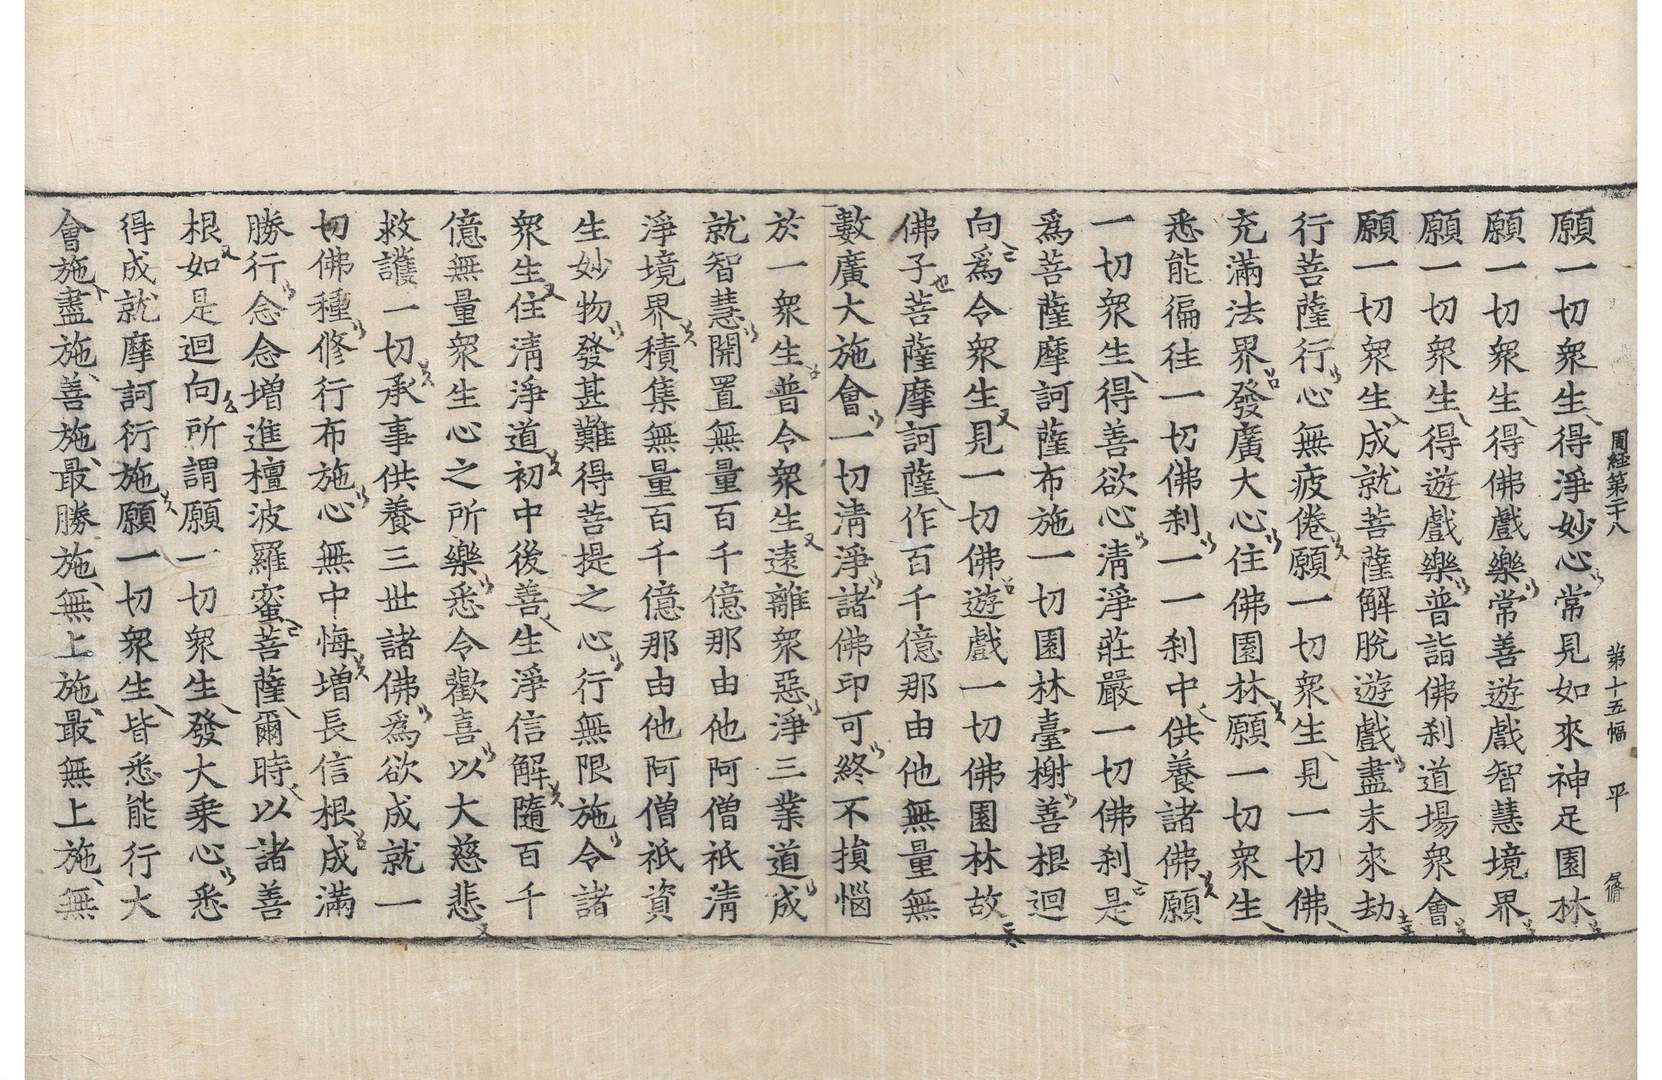 周経第二十八 第十五幅 平
願一切衆生得淨妙心常見如來神足園林
願一切衆生得佛戲樂常善遊戲智慧境界
願一切衆生得遊戲樂普詣佛刹道場衆會
願一切衆生成就菩薩解脫遊戲盡未來劫
行菩薩行心無疲倦願一切衆生見一切佛
充滿法界發廣大心住佛園林願一切衆生
悉能徧往一切佛刹一一刹中供養諸佛願
一切衆生得善欲心淸淨莊嚴一切佛刹是
爲菩薩摩訶薩布施一切園林臺榭善根迴
向爲令衆生見一切佛遊戲一切佛園林故
佛子菩薩摩訶薩作百千億那由他無量無
數廣大施會一切淸淨諸佛印可終不損惱
於一衆生普令衆生遠離衆惡淨三業道成
就智慧開置無量百千億那由他阿僧祇淸
淨境界積集無量百千億那由他阿僧祇資
生妙物發甚難得菩提之心行無限施令諸
衆生住淸淨道初中後善生淨信解隨百千
億無量衆生心之所樂悉令歡喜以大慈悲
救護一切承事供養三世諸佛爲欲成就一
切佛種修行布施心無中悔增長信根成滿
勝行念念增進檀波羅蜜菩薩爾時以諸善
根如是迴向所謂願一切衆生發大乘心悉
得成就摩訶衍施願一切衆生皆悉能行大
會施盡施善施最勝施無上施最無上施無